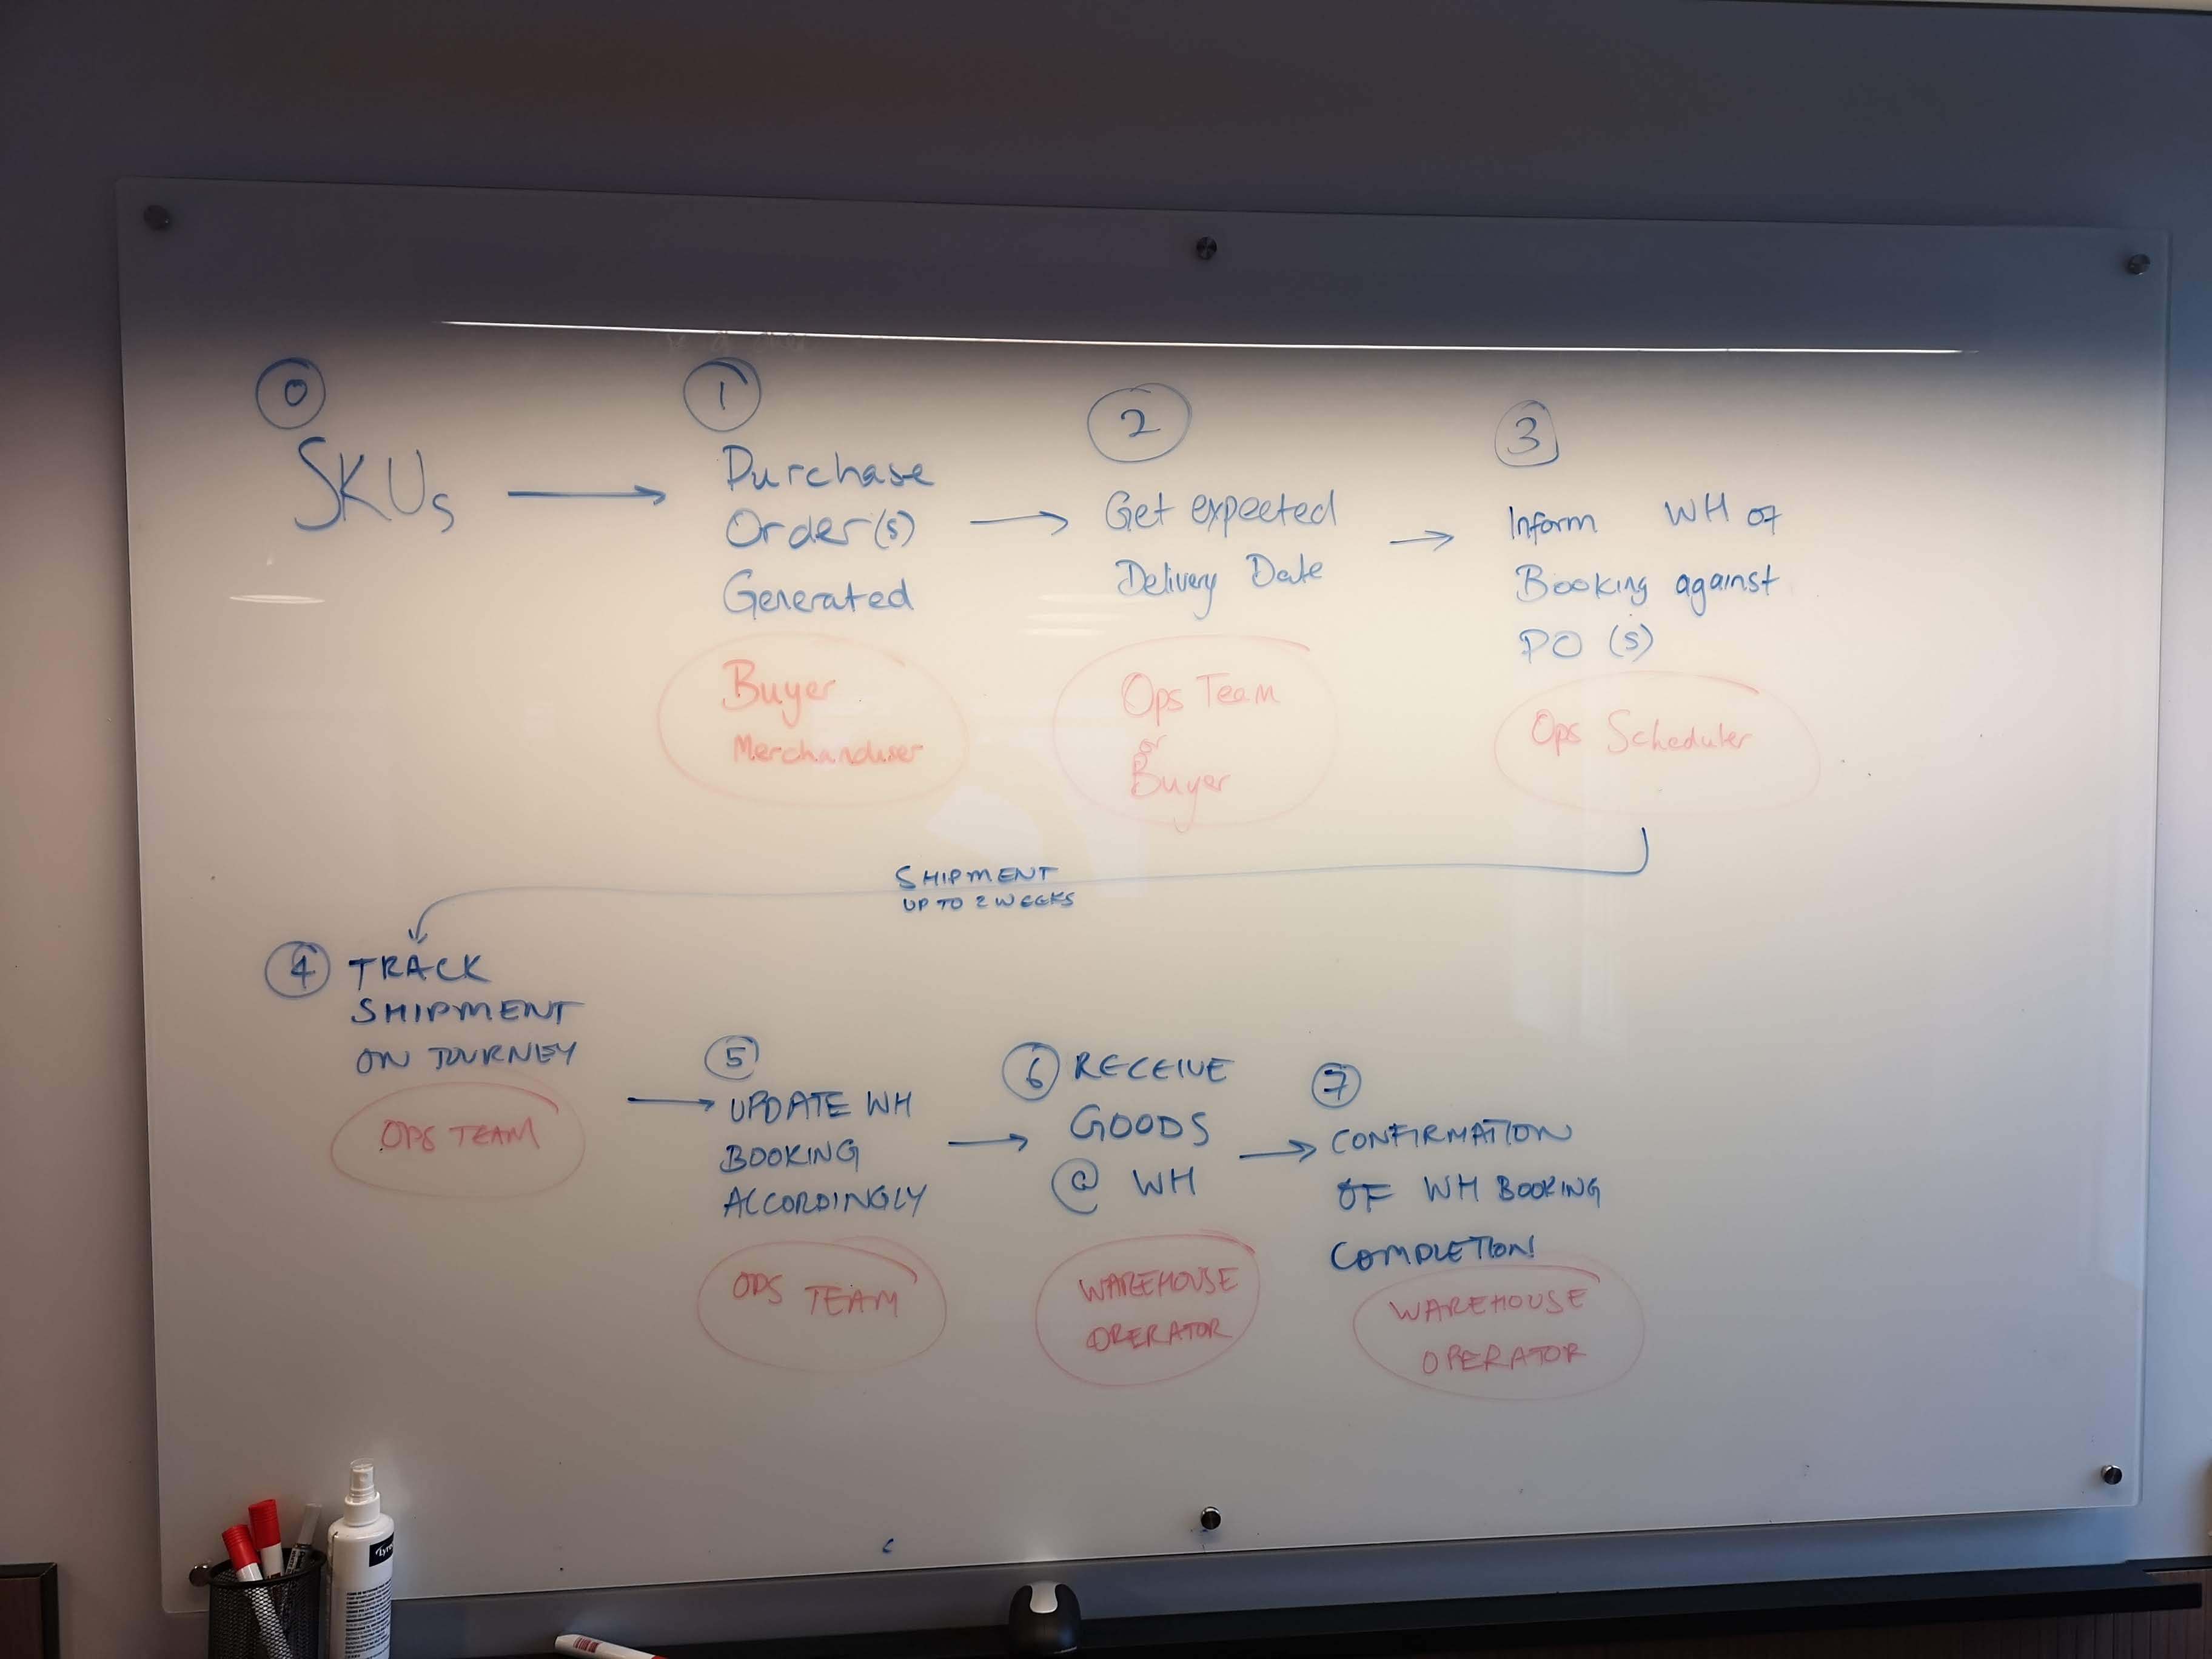 0
SKUs
1
Purchase
Order(s)
Generated
Buyer
Merchandiser
2
Get expected
Delivery Date
Ops Team
or
Buyer
3
Inform WH of
Booking against
PO (s)
Ops Scheduler
SHIPMENT
UP TO 2 WEEKS
4 TRACK
SHIPMENT
ON JOURNEY
OPS TEAM
5
UPDATE WH
BOOKING
ACCORDINGLY
OPS TEAM
6 RECEIVE
GOODS
@ WH
WAREHOUSE
OPERATOR
7
CONFIRMATION
OF WH BOOKING
COMPLETION!
WAREHOUSE
OPERATOR